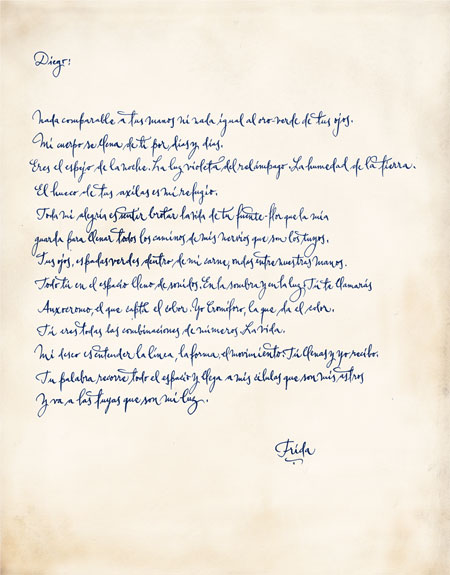 Diego:
Nada comparable a tus manos ni nada igual al oro-verde de tus ojos.
Mi cuerpo se llena de ti por días y días.
Eres el espejo de la noche. La luz violeta del relámpago. La humedad de la tierra.
El hueco de tus axilas es mi refugio.
Toda mi alegría es sentir brotar la vida de tu fuente-flor que la mía
guarda para llenar todos los caminos de mis nervios que son los tuyos.
Tus ojos, espadas verdes dentro de mi carne, ondas entre nuestras manos.
Todo tú en el espacio lleno de sonidos. En la sombra y en la luz. Tú te llamarás
Auxocromo, el que capta el color. Yo Cromóforo, la que da el color.
Tú eres todas las combinaciones de números. La vida.
Mi deseo es entender la línea, la forma, el movimiento. Tú llenas y yo recibo.
Tu palabra recorre todo el espacio y llega a mis células que son mis astros
y va a las tuyas que son mi luz.
Frida